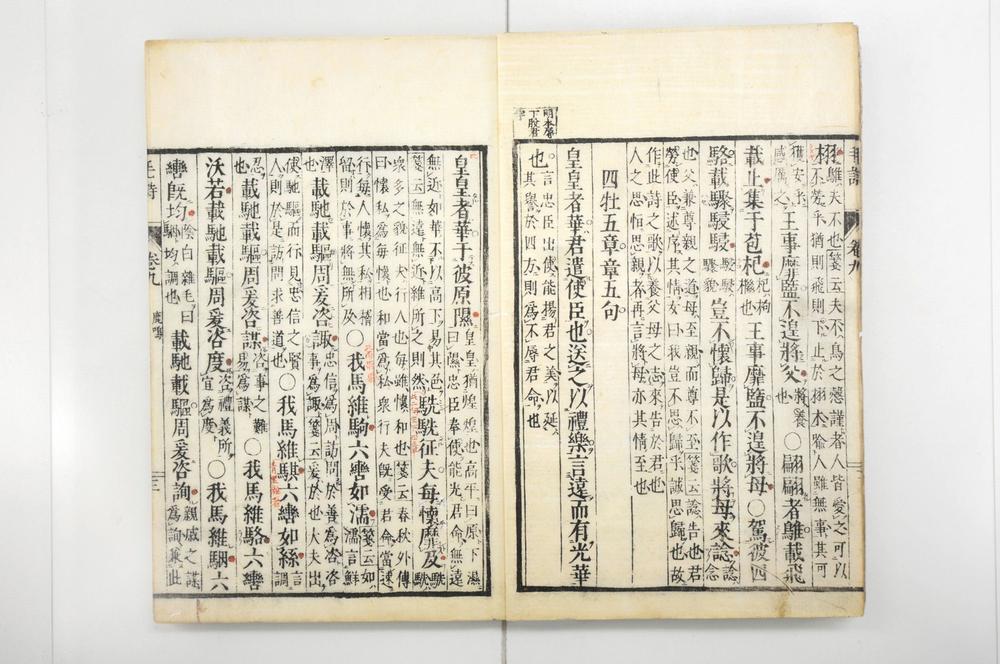 明本譽
下脫於
字
毛詩 卷九
栩鵻夫不也箋云夫不鳥之愨謹者人皆愛之可以
不勞乎猶則飛則下止於栩木喻人雖無事其可
獲安乎感厲之王事靡盬不遑將父將養也○翩翩者鵻載飛
載止集于苞杞杞枸檵也王事靡盬不遑將母○駕彼四
駱載驟駸駸駸駸驟貌豈不懷歸是以作歌將母來諗諗念
也父兼尊親之道母至親而尊不至箋云諗告也君
勞使臣述序其情女曰我豈不思歸乎誠思歸也故
作此詩之歌以養父母之志來告於君也
人之思恒思親者再言將母亦其情至也
四牡五章章五句
皇皇者華君遣使臣也送之以禮樂言遠而有光華
也言忠臣出使能揚君之美以延
其譽於四方則為不辱君命也
皇皇者華于彼原隰皇皇猶煌煌也高平曰原下濕曰隰忠臣奉使能光君命無遠
無近如華不以高下易其色箋云無遠無近維所之則然駪駪征夫每懷靡及駪駪
衆多之貌征夫行人也每雖懷和也箋云春秋外傳
曰懷私為每懷也和當為私衆行夫既受君命當速
行每人懷其私相稽留則於事將無所及○我馬維駒六轡如濡箋云如濡言鮮
澤也載馳載驅周爰咨諏忠信為周訪問於善為咨咨事為諏箋云爰於也大夫出
使馳驅而行見忠信之賢人則於是訪問求善道也○我馬維騏六轡如絲言調
忍也載馳載驅周爰咨謀咨事之難易為謀○我馬維駱六轡
沃若載馳載驅周爰咨度咨禮義所宜為度○我馬維駰六
轡既均陰白雜毛曰駰均調也載馳載驅周爰咨詢親戚之謀為詢兼此
毛詩 卷九 鹿鳴 三